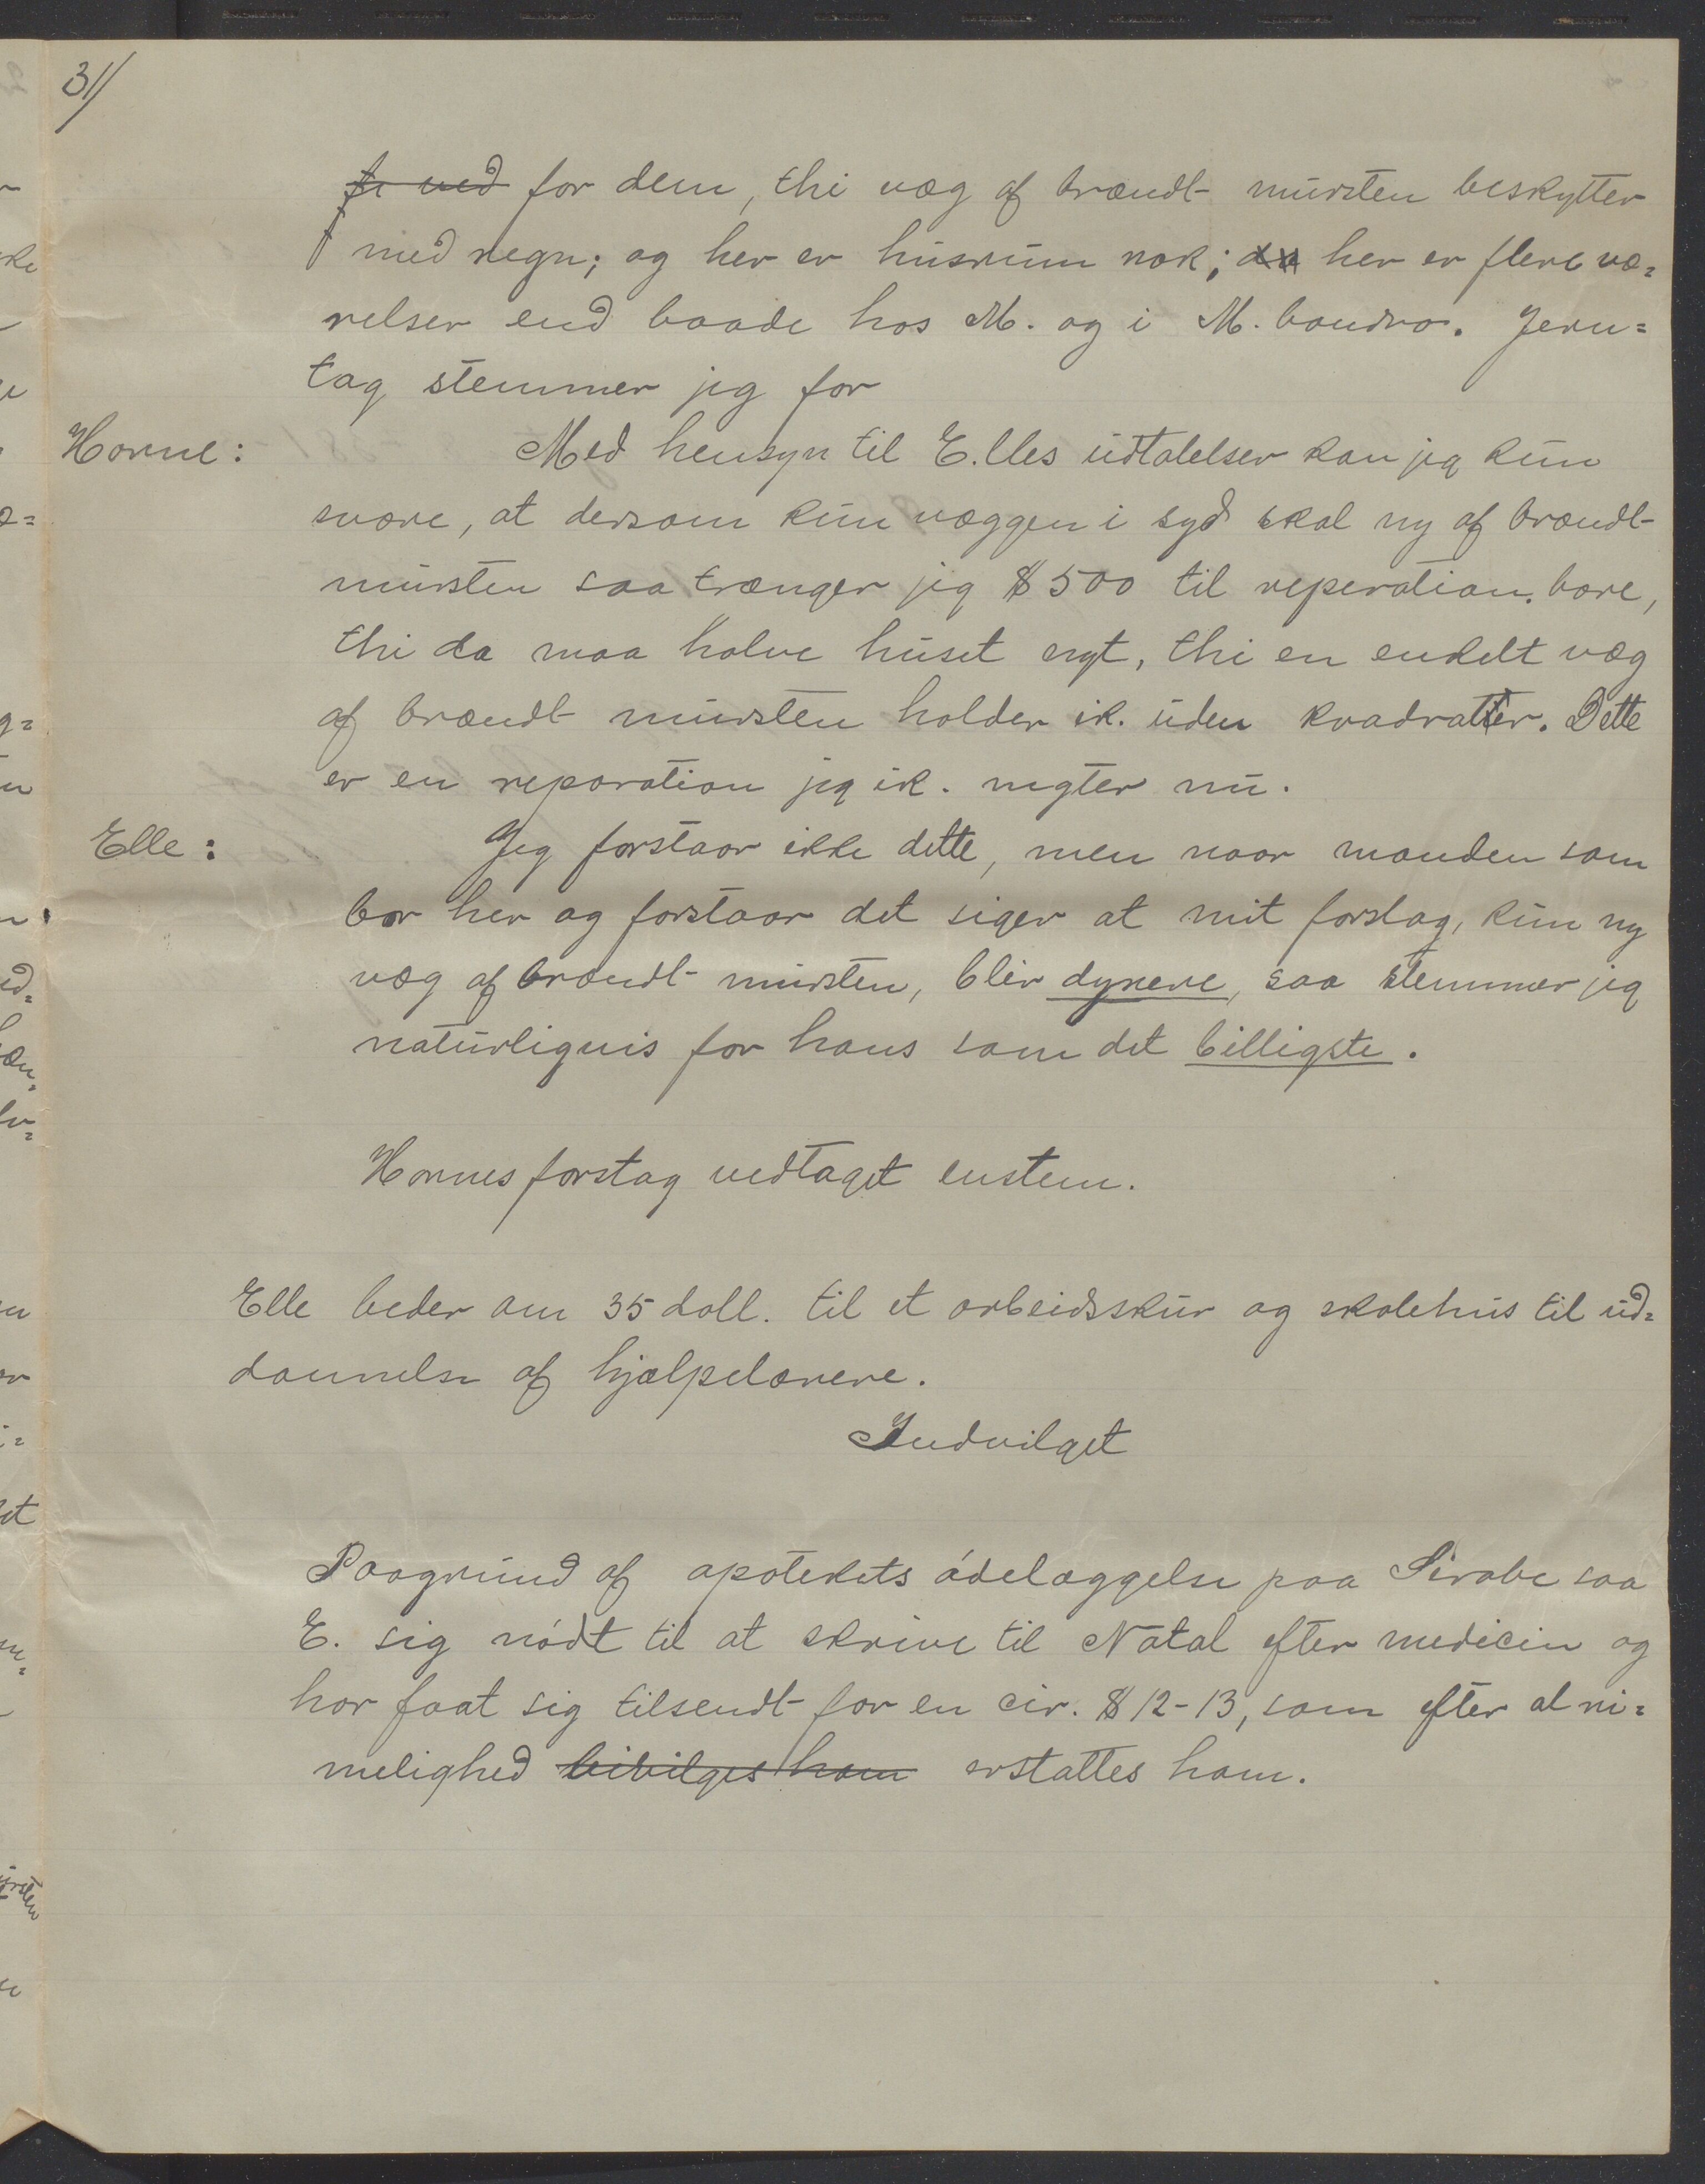 31/
fr ved for dem, thi væg af brændt mursten beskytter
med regn; og her er husrum nok; da her er flere væ=
relser end baade hos M. og i M.bondro. Jern=
tag stemmer jeg for
Horne: Med hensyn til E.lles udtalelser kan jeg kun
svare, at dersom kun væggen i syd skal ny af brændt
mursten saa trænger jeg $500 til reperation bare,
thi da maa halve huset nyt, thi en enkelt væg
af brændt mursten holder ik. uden kvadratter. Dette
er en reparation jeg ik. rigter nu.
Elle: Jeg forstaar ikke dette, men naar manden som
bor her og forstaar det siger at mit forslag, kun ny
væg af brændt mursten, blir dyrere, saa stemmer jeg
naturligvis for hans som det billigste.
Hornes forslag vedtaget enstem.
Elle beder om 35 doll. til et arbeidsskur og skolehus til ud=
dannelse af hjælpelærere.
Indvilget
Paagrund af apotekets ødelæggelse paa Sirabe saa
E. sig nødt til at skrive til Natal efter medicin og
har faat sig tilsendt for en cir. $12-13, som efter al ri=
melighed bibilges ham erstattes ham.